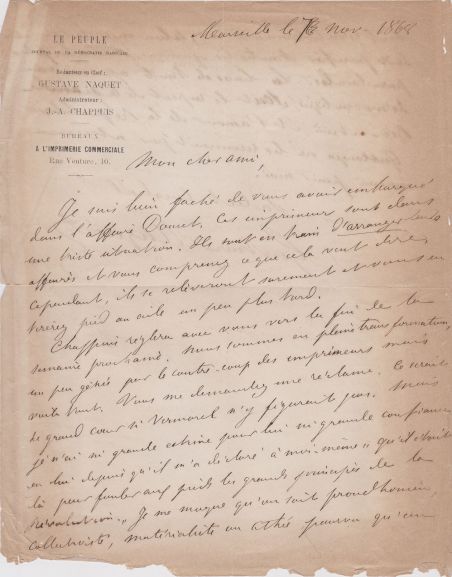 LE PEUPLE
JOURNAL DE LA DÉMOCRATIE
Rédacteur en Chef :
GUSTAVE NAQUET
Administrateur :
J.-A. CHAPPUIS
BUREAUX
A L'IMPRIMERIE COMMERCIALE
Rue Venture, 16.
Marseille le nov. 1868
Mon cher ami,
Je suis bien fâché de vous avoir embarqué
dans l'affaire Doucet. Ces imprimeur sont dans
une triste situation. Ils sont en train d'arranger leurs
affaires et vous comprenez ce que cela veut dire,
cependant, ils se relèveront surement et vous en
tirerez pied ou aile un peu plus tard.
Chappuis reglera avec vous vers la fin de la
semaine prochaine. Nous sommes en pleine transformation,
un peu gênés par le contre-coup des imprimeurs mais
voila tout. Vous me demandez une réclame. Ce serait
de grand cœur si Vermorel n'y figurait pas. Mais
je n'ai ni grande estime pour lui ni grande confiance
en lui depuis qu'il m'a déclaré à moi-même "qu'il était
là pour fouler aux pieds les grands principes de la
révolution." Je me moque qu'on soit proudhonien,
collectiviste, matérialiste ou athée pourvu qu'on